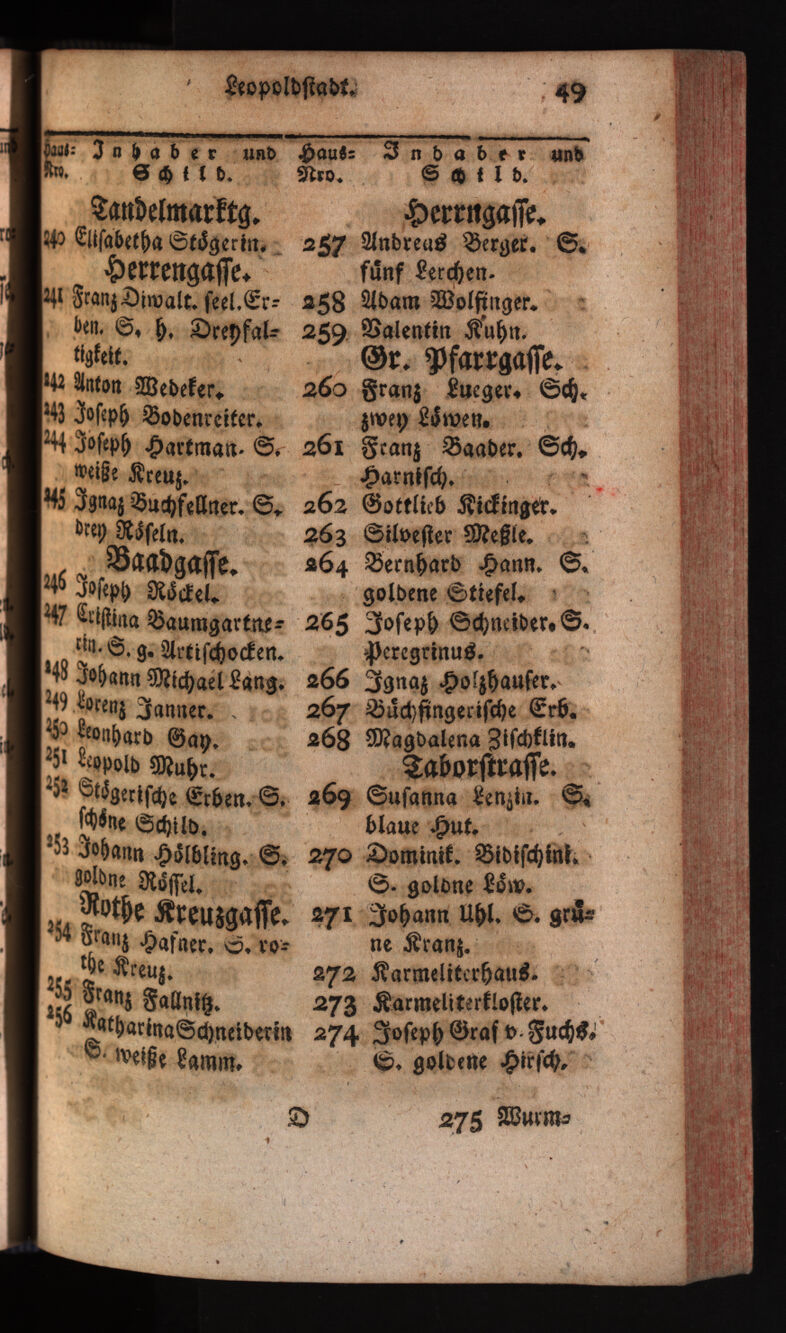 Leopoldstadt.
49
Haus= Inhaber und
Nro. Schild.
Tandelmarktg.
240 Elisabetha Stögerin.
Herrengasse.
241 Franz Diwalt. seel. Er=
ben. S. h. Dreyfal=
tigkeit.
242 Anton Wedeker.
243 Joseph Bodenreiter.
244 Joseph Hartman. S.
weiße Kreuz.
245 Ignaz Buchfellner. S.
drey Röseln.
Baadgasse.
246 Joseph Röckel.
247 Cristina Baumgartne=
rin. S. g. Artischocken.
248 Johann Michael Lang.
249 Lorenz Janner.
250 Leonhard Gay.
251 Leopold Muhr.
252 Stögerische Erben. S.
schöne Schild.
253 Johann Hölbling. S.
goldne Rössel.
Rothe Kreuzgasse.
254 Franz Hafner. S. ro=
the Kreuz.
255 Franz Fallnitz.
256 Katharina Schneiderin
S. weiße Lamm.
Haus= Inhaber und
Nro. Schild.
Herrngasse.
257 Andreas Berger. S.
fünf Lerchen.
258 Adam Wolfinger.
259 Valentin Kuhn.
Gr. Pfarrgasse.
260 Franz Lueger. Sch.
zwey Löwen.
261 Franz Baader. Sch.
Harnisch.
262 Gottlieb Kickinger.
263 Silvester Meßle.
264 Bernhard Hann. S.
goldene Stiefel.
265 Joseph Schneider. S.
Peregrinus.
266 Ignaz Holzhauser.
267 Büchfingerische Erb.
268 Magdalena Zischklin.
Taborstrasse.
269 Susanna Lenzin. S.
blaue Hut.
270 Dominik. Vidischini.
S. goldne Löw.
271 Johann Uhl. S. grü=
ne Kranz.
272 Karmeliterhaus.
273 Karmeliterkloster.
274 Joseph Graf v. Fuchs.
S. goldene Hirsch.
D
275 Wurm=